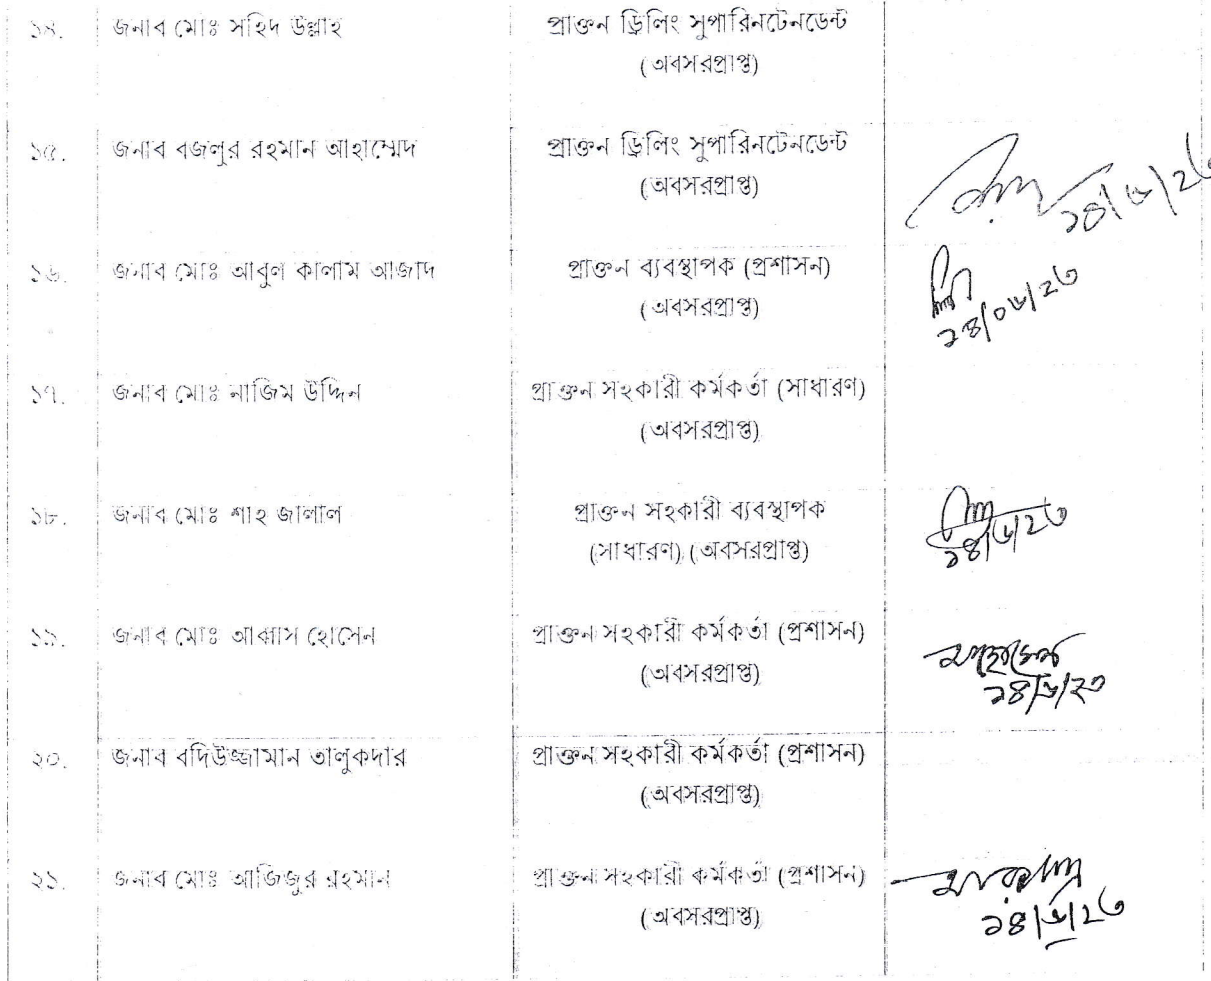 ১৪. জনাব মোঃ সহিদ উল্লাহ প্রাক্তন ড্রিলিং সুপারিনটেনডেন্ট
(অবসরপ্রাপ্ত)
১৫. জনাব বজলুর রহমান আহাম্মেদ প্রাক্তন ড্রিলিং সুপারিনটেনডেন্ট
(অবসরপ্রাপ্ত) ১৪/৬/২৩
১৬. জনাব মোঃ আবুল কালাম আজাদ প্রাক্তন ব্যবস্থাপক (প্রশাসন)
(অবসরপ্রাপ্ত) ১৪/০৬/২৩
১৭. জনাব মোঃ নাজিম উদ্দিন প্রাক্তন সহকারী কর্মকর্তা (সাধারণ)
(অবসরপ্রাপ্ত)
১৮. জনাব মোঃ শাহ জালাল প্রাক্তন সহকারী ব্যবস্থাপক
(সাধারণ) (অবসরপ্রাপ্ত) ১৪/৬/২৩
১৯. জনাব মোঃ আব্বাস হোসেন প্রাক্তন সহকারী কর্মকর্তা (প্রশাসন)
(অবসরপ্রাপ্ত) ১৪/৬/২৩
২০. জনাব বদিউজ্জামান তালুকদার প্রাক্তন সহকারী কর্মকর্তা (প্রশাসন)
(অবসরপ্রাপ্ত)
২১. জনাব মোঃ আজিজুর রহমান প্রাক্তন সহকারী কর্মকর্তা (প্রশাসন)
(অবসরপ্রাপ্ত) ১৪/৬/২৩